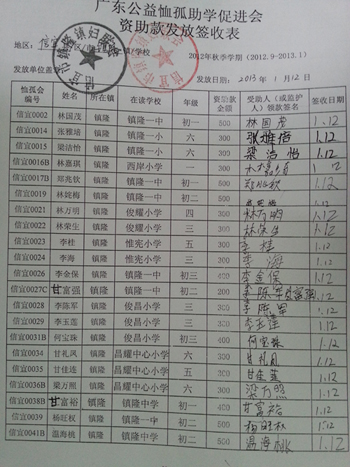 广东公益恤孤助学促进会
资助款发放签收表
地区：信宜 区/ 镇/学校
2012年秋季学期（2012.9-2013.1）
发放单位盖章
发放日期：2013年1月12日
恤孤会编号 姓名 所在镇 在读学校 年级 资助款金额 受助人（或监护人）领款签名 签收日期
信宜0002 林国茂 镇隆 镇隆一中 初一 500 林国茂 1.12
信宜0014 张雅培 镇隆 镇隆一小 六 300 张雅培 1.12
信宜0015 梁洁怡 镇隆 镇隆一小 六 300 梁洁怡 1.12
信宜0016B 林嘉琪 镇隆 西岸小学 一 300 林嘉琪 1.12
信宜0017B 郑宛钦 镇隆 镇隆一中 初一 500 1.12
信宜0019 林婉梅 镇隆 镇隆一中 初二 1.12
信宜0021 林万明 镇隆 俊耀小学 四 300 林万明 1.12
信宜0022 林荣生 镇隆 俊耀小学 三 300 林荣生 1.12
信宜0023 李桂 镇隆 惟宪小学 五 300 李桂 1.12
信宜0024 李海 镇隆 惟宪小学 三 300 李海 1.12
信宜0026 李金保 镇隆 镇隆一中 初三 400 李金保 1.12
信宜0027C 甘富强 镇隆 镇隆一中 初二 1.12
信宜0028 李陈军 镇隆 俊昌小学 三 300 李陈军 1.12
信宜0029 李玉莲 镇隆 俊昌小学 三 300 李玉莲 1.12
信宜0031B 何宝珠 镇隆 俊昌小学 初三 400 何宝珠 1.12
信宜0034 甘礼风 镇隆 昌耀中心小学 六 300 甘礼风 1.12
信宜0035 甘佳连 镇隆 昌耀中心小学 五 300 1.12
信宜0036B 梁万照 镇隆 昌耀中心小学 三 300 梁万照 1.12
信宜0038B 甘富裕 镇隆 镇隆中学 初一 甘富裕 1.12
信宜0039 杨旺权 镇隆 镇隆中学 初二 500 杨旺权 1.12
信宜0041B 温海桃 镇隆 镇隆中学 初二 500 温海桃 1.12